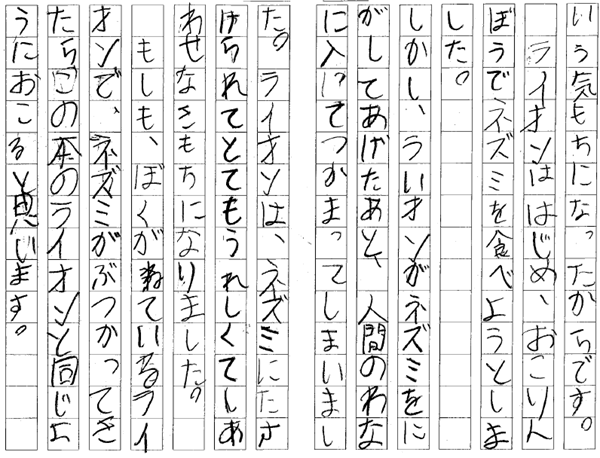 いう気もちになったからです。
ライオンははじめ、おこりん
ぼうでネズミを食べようとしま
した。
しかし、ライオンがネズミをに
がしてあげたあと、人間のわな
に入ってつかまってしまいまし
た。ライオンは、ネズミにたす
けられてとてもうれしくてしあ
わせなきもちになりました。
もしも、ぼくがねているライ
オンで、ネズミがぶつかってき
たらこの本のライオンと同じよ
うにおこると思います。